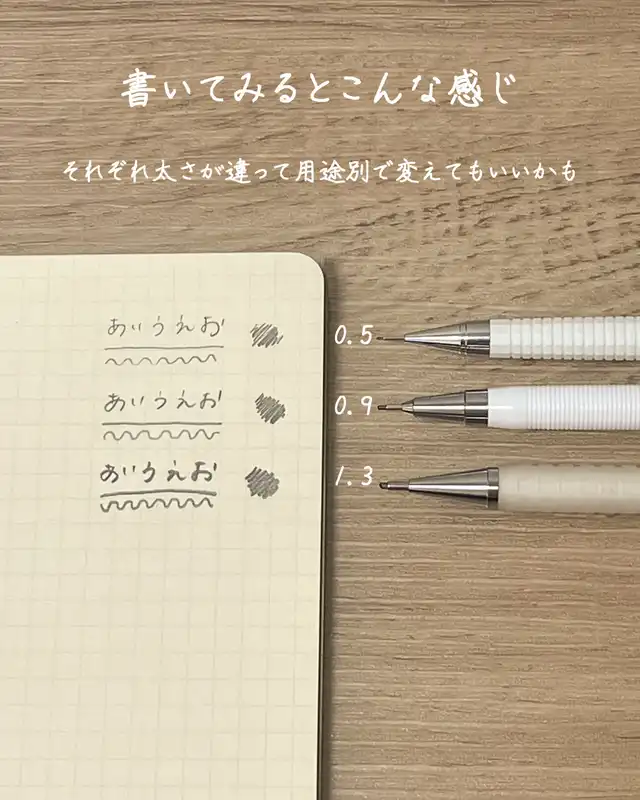 書いてみるとこんな感じ
それぞれ太さが違って用途別で変えてもいいかも
あいうえお
0.5
あいうえお
0.9
あいうえお
1.3